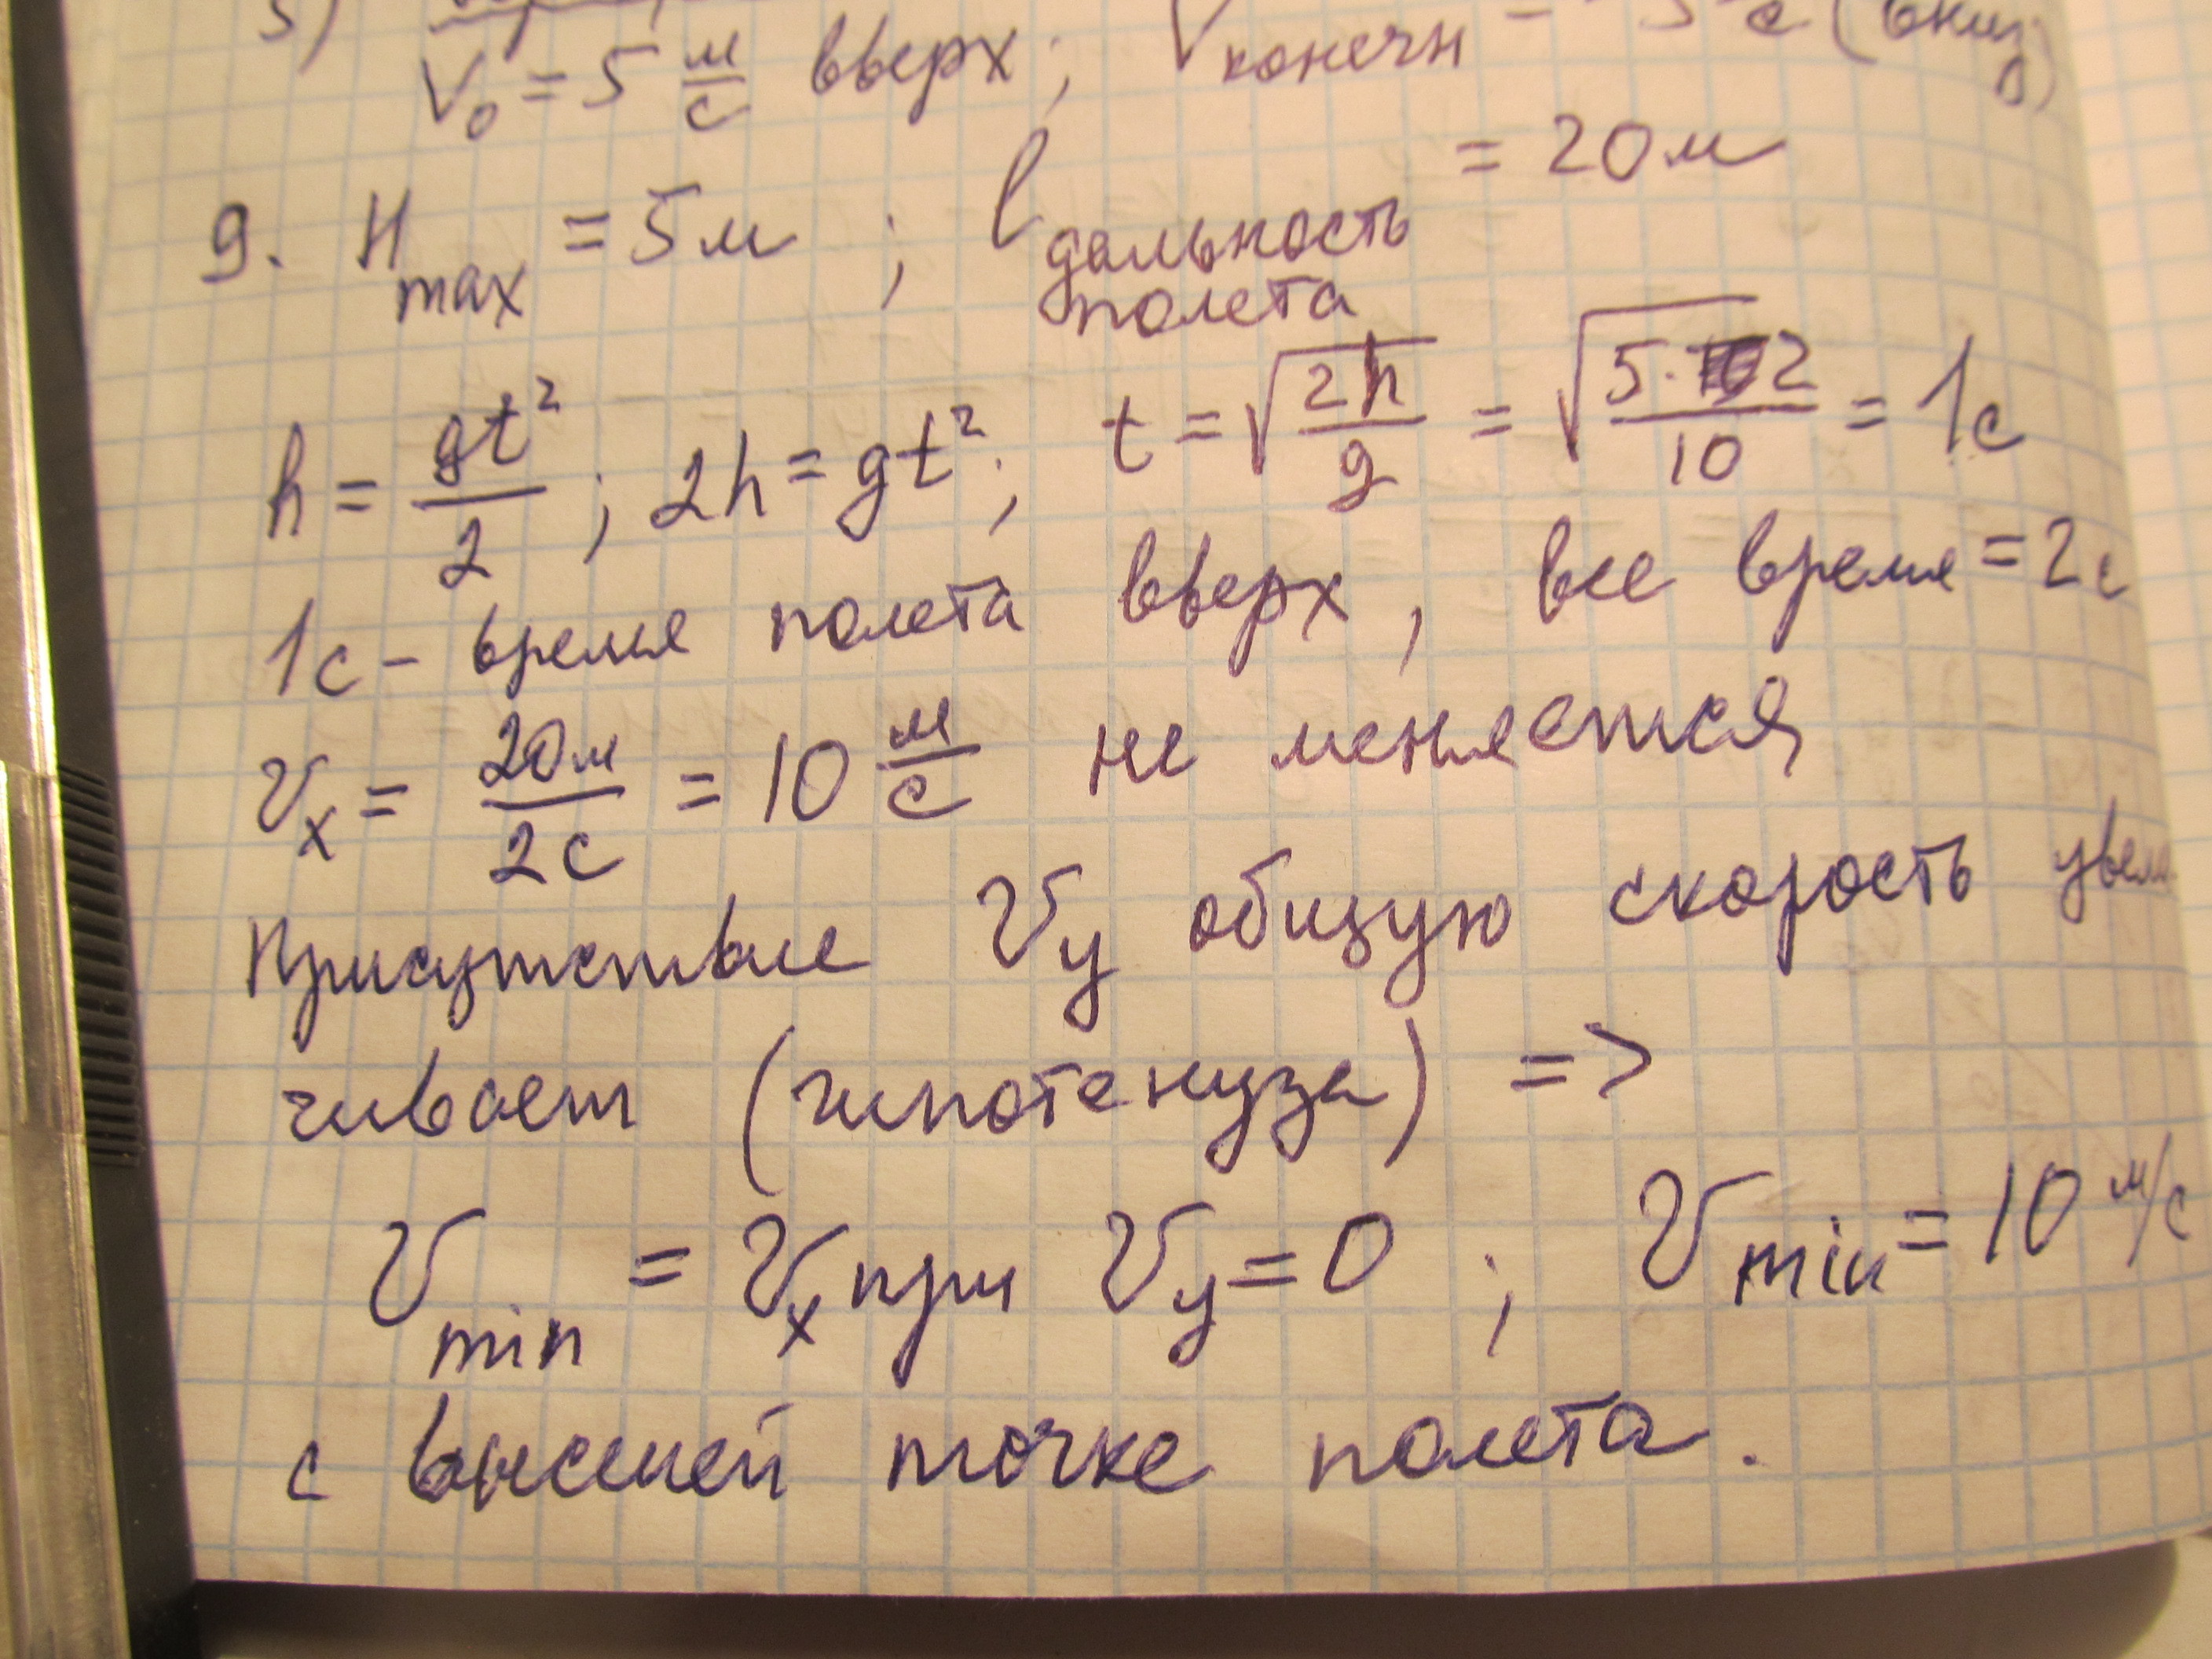 V₀ = 5 м/с вверх; Vконечн = -5 с (вниз)
9. Hmax = 5м ; lдальность полета = 20м
h = gt²/2 ; 2h = gt²; t = √(2h/g) = √(5·2/10) = 1с
1с - время полета вверх, все время = 2с
Vx = 20м/2с = 10 м/с не меняется
Присутствие Vy общую скорость увели-
чивает (гипотенуза) =>
Vmin = Vx при Vy = 0 ; Vmin = 10 м/с
с высшей точке полета.